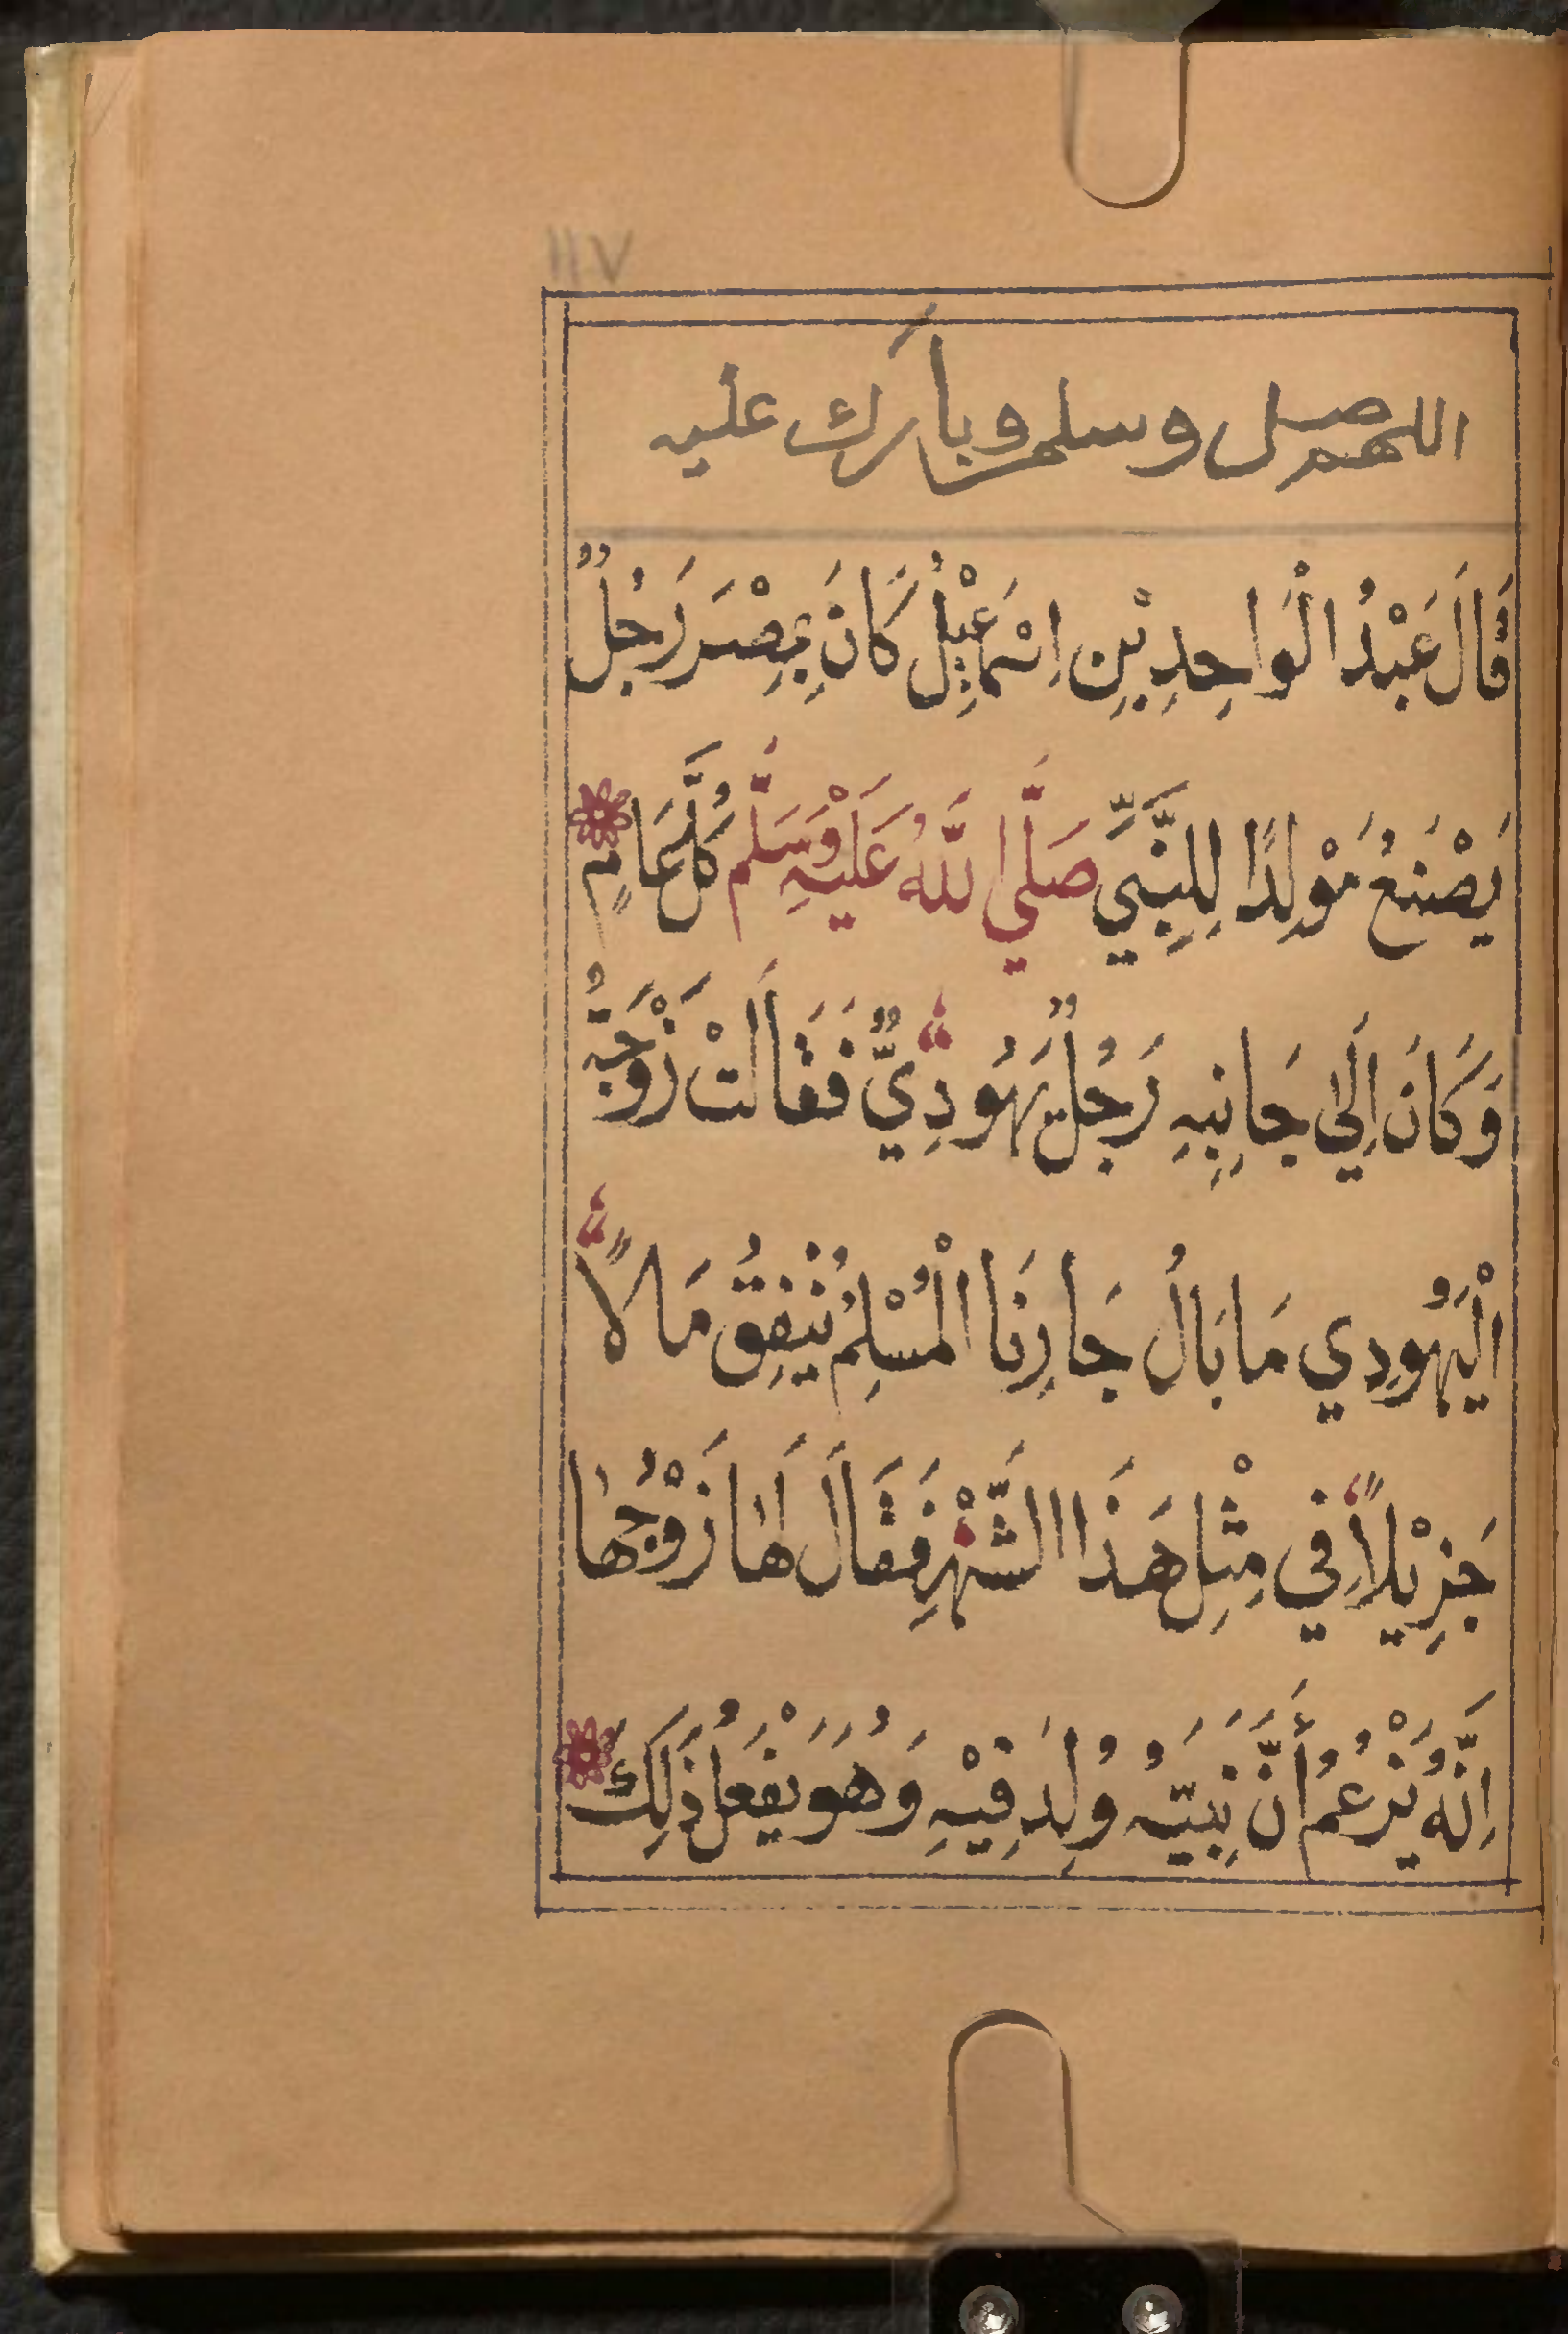 ١١٧
اللهم صل وسلم وبارك عليه
قَالَ عَبْدُ الْوَاحِدِ بْنِ اِسْمَاعِيْلُ كَانَ بِمِصْرَ رَجُلٌ
يَصْنَعُ مَوْلِدًا لِلنَّبِيِّ صَلَّي اللَّهُ عَلَيْهِ وَسَلَّمَ كُلَّ عَامٍ
وَكَانَ اِلَىٰ جَانِبِهِ رَجُلٌ يَهُودِيٌّ فَقَالَتْ زَوْجَتُهُ
الْيَهُودِي مَا بَالُ جَارِنَا الْمُسْلِمُ يُنْفِقُ مَالاً
جَزِيْلاً فِي مِثْلِ هَذَا الشَّهْرِ فَقَالَ لَهَا زَوْجُهَا
اِنَّهُ يَزْعُمُ أَنَّ نَبِيَّهُ وُلِدَ فِيْهِ وَهُوَ يَفْعَلُ ذَلِكَ